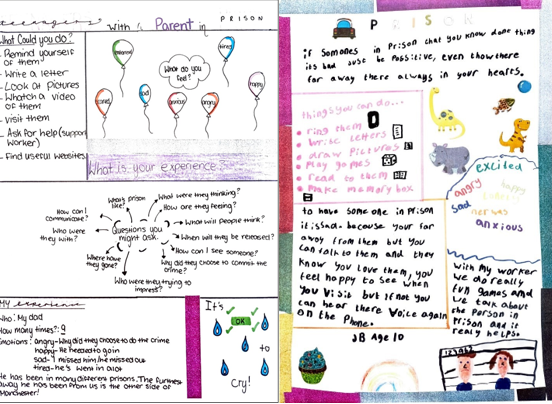 Teenagers
With a Parent in PRISON
What Could you do?
- Remind yourself
of them
- Write a letter
- Look at Pictures
- Whatch a video
of them
- Visit them
- Ask for help (support
worker)
- Find useful websites
tired
What do you
feel?
happy
sad
anxious
angry
What is your experience?
What's prison
like?
What were they thinking?
How are they feeling?
How can I
communicate?
What will people think?
Who were
they with?
Questions you
might ask
When will they be released?
How can I see someone?
Where have
they gone?
Why did they choose to commit the
crime?
Who were they trying to
impress?
MY experience
Who: My dad
How many times?: 9
Emotions: angry-Why did they choose to do the crime
happy- He needed to go in
sad- I missed him/he missed out
tired-he's went in alot
He has been in many different prisons. The furthest
away he has been from us is the other side of
Manchester!
It's
OK
to
Cry!
PRISON
if someones in Prison that you know done thing
its bad just be Possitive, even thow there
far away there always in your hearts.
things you can do...
ring them
write letters
draw pictures
play games
read to them
make memory box
excited
angry
happy
sad
nerves
anxious
to have some one in Prison
it is sad because your far
away from them but you
can talk to them and they
know you Love them, you
feel happy to see when
you Visit but if not you
can hear there Voice again
on the Phone.
JB Age 10
with my worker
we do really
fun games and
we talk about
the person in
Prison and it
really helps.